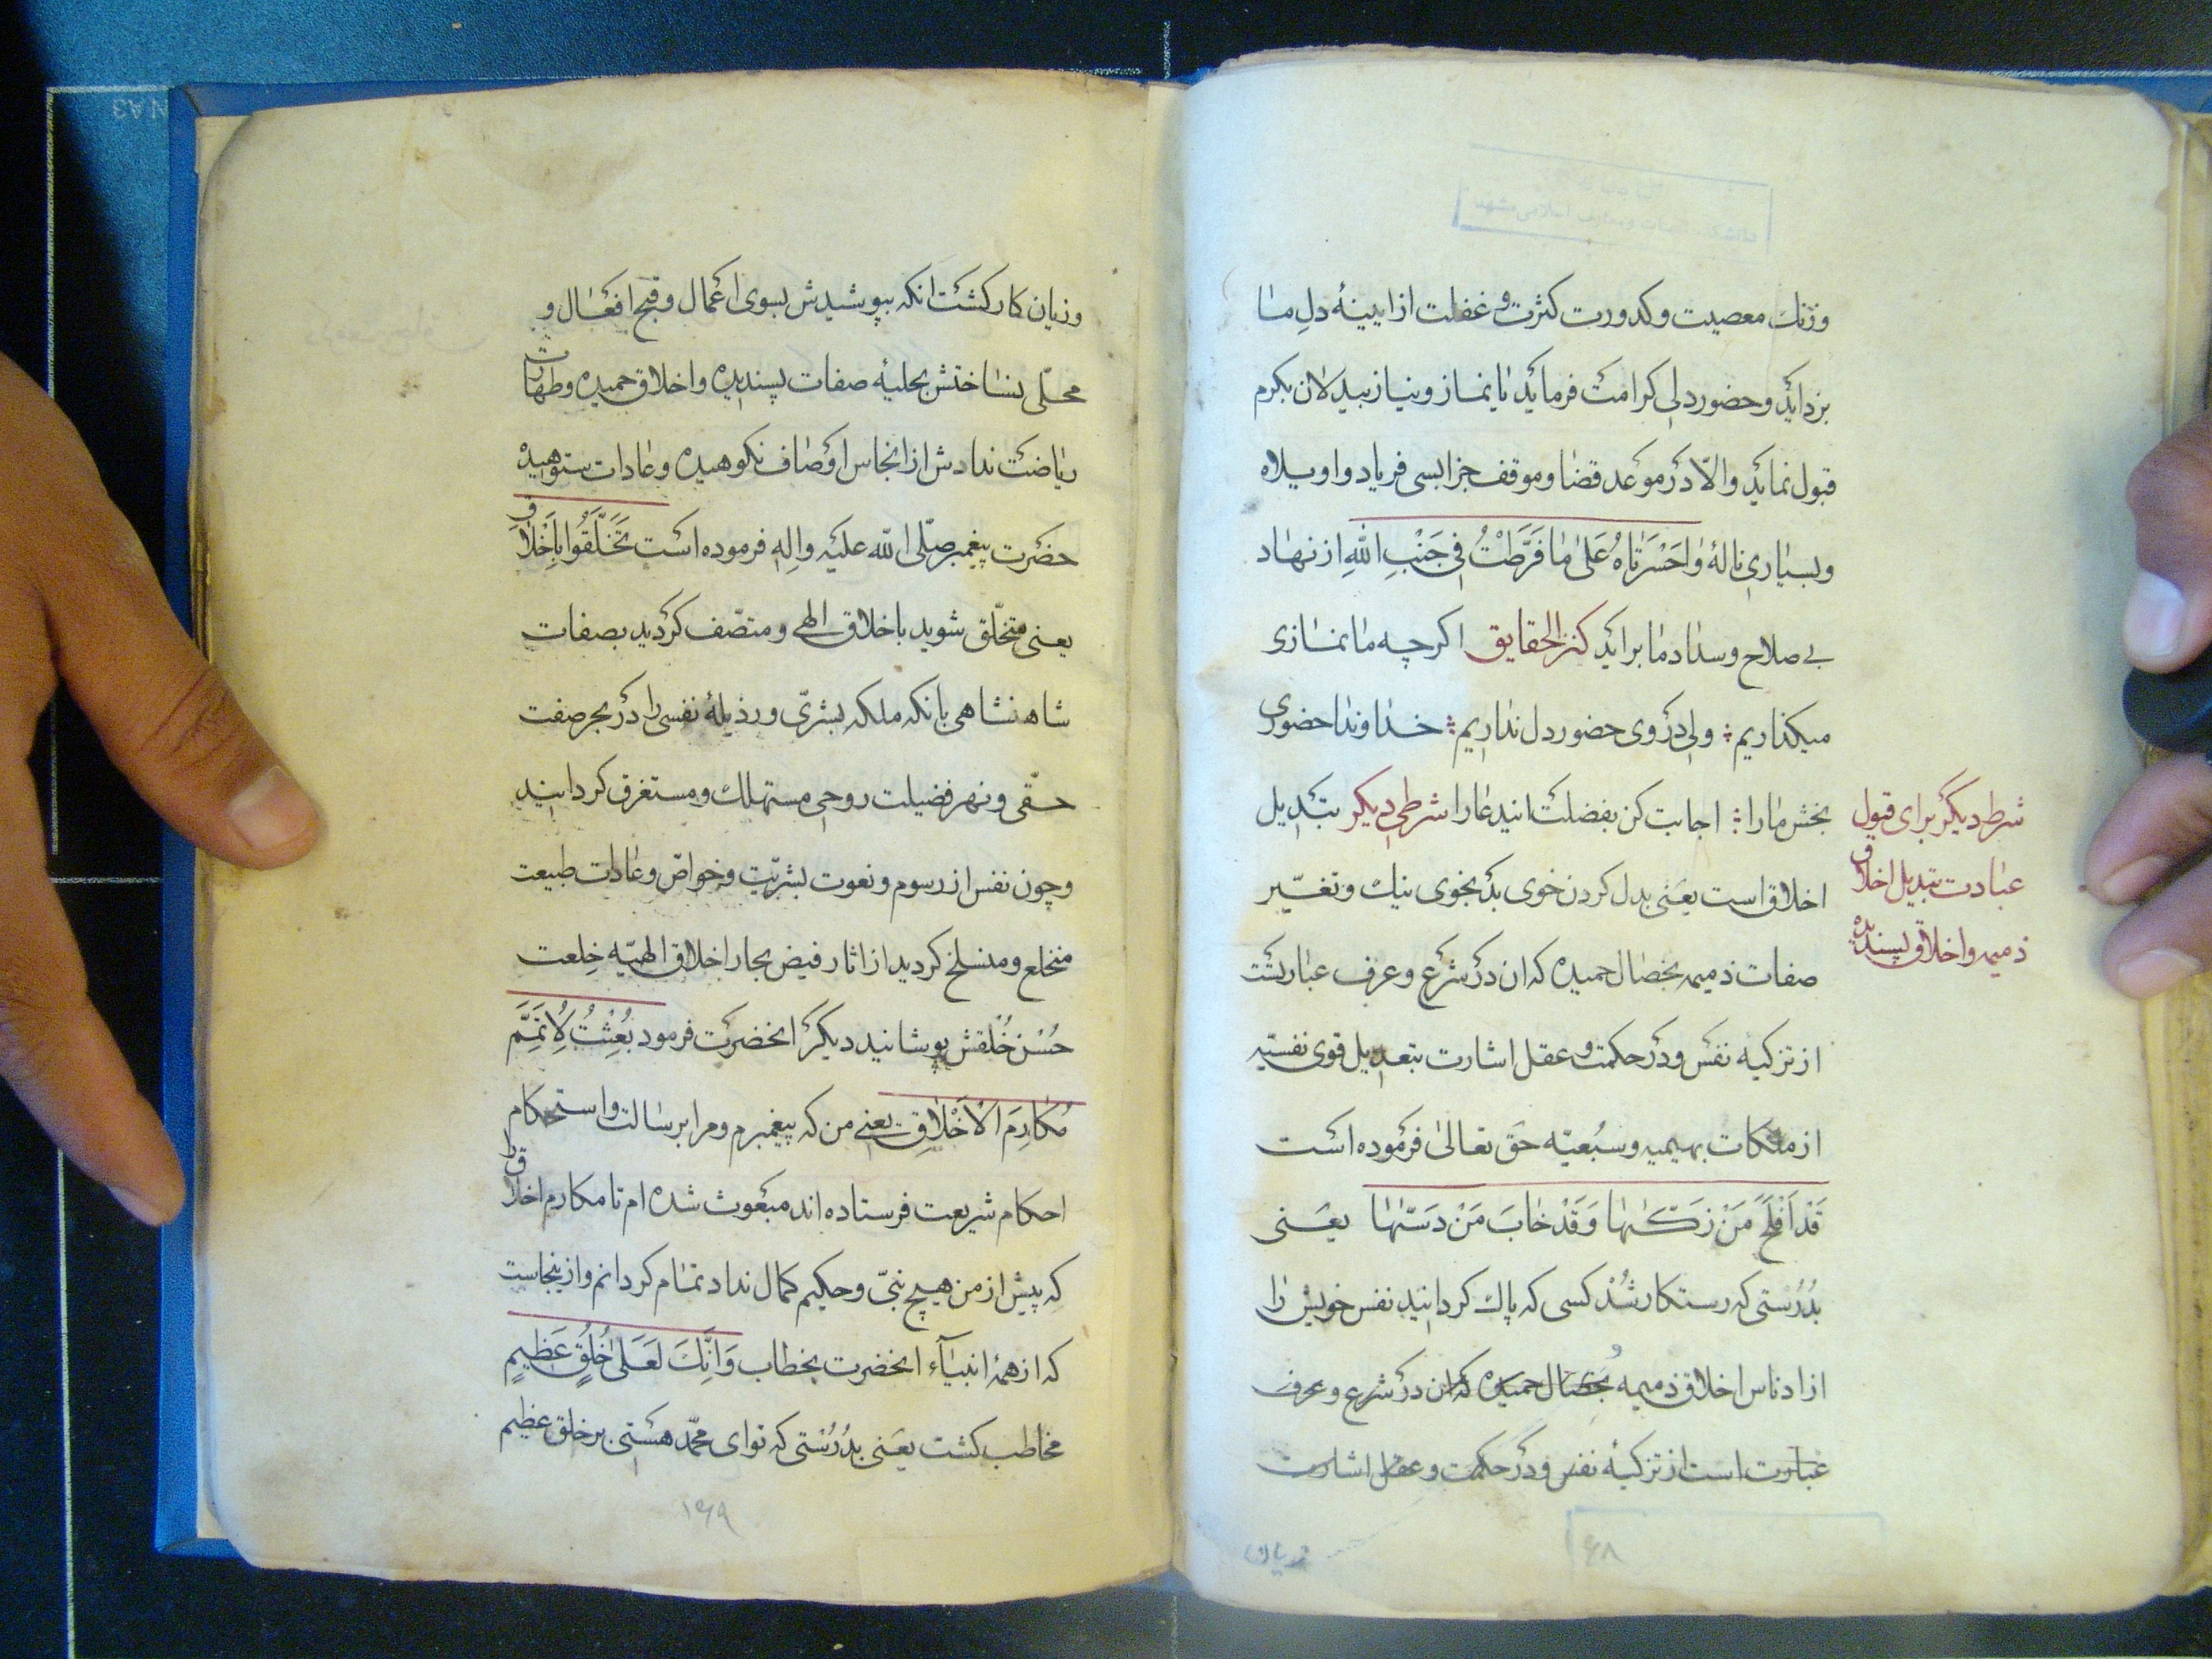 وزنك معصیت وکدورت کثرت و غفلت از ایینهٔ دلِ ما
بزداید وحضور دلی کرامت فرماید تا نماز ونیاز بیدلان بکرم
قبول نماید والّا در موعد قضا وموقف جزا بسی فریاد واویلاه
وبسیاری نالهٔ وٰاحَسْرَتٰاهُ عَلیٰ مٰا فَرَّطْتُ فِی جَنْبِ اللهِ از نهاد
بی صلاح وسداد ما براید کنز الحقایق اکرچه ما نمازی
میکذاریم ولی در وی حضور دل نداریم خداوندا حضوری
بخش مارا اجابت کن بفضلت انید عارا شرطی دیکر تبدیل
اخلاق است یعنی بدل کردن خوی بد بخوی نیك وتغییر
صفات ذمیمه بخصال حمیده که ان در شرع وعرف عبارتست
از تزکیه نفس ودر حکمت و عقل اشارت بتعدیل قوی نفسیّه
از ملکات بهیمیه وسبُعیّه حق تعالیٰ فرموده است
قَدْ اَفْلَحَ مَنْ زَکّٰیهٰا وَقَدْ خٰابَ مَنْ دَسّٰیهٰا یعنی
بدُرُستی که رستکار شُدْ کسی که پاك کردانید نفس خویش را
از ادناس اخلاق ذمیمه بخصال حمیده که ان در شرع وعرف
عبارت است از تزکیهٔ نفس ودر حکمت وعقل اشارت
شرط دیکر برای قبول
عبادت تبدیل اخلاق
ذمیمه واخلاق پسندیده
زیان
۱۶۸
وزیان کار کشت انکه بپوشیدش بسوی اعمال وقبح افعال و
محلّی نساختش بحلیهٔ صفات پسندیده واخلاق حمیده وطهارت
ریاضت ندادش از انجاس اوصاف نکوهیده وعادات ستوهیده
حضرت پیغمبر صلّی الله علیه واله فرموده است تَخَلَّقُوا بِاَخْلاقِ
یعنی متخلّق شوید باخلاق الهی ومتصّف کردید بصفات
شاهنشاهی بانکه ملکه بشرّی ورذیلهٔ نفسی را در بحر صفت
حقّی ونهر فضیلت روحی مستهلك ومستغرق کردانید
وچون نفس از رسوم ونعوت بشریّت وخواصّ وعادات طبیعت
منخلع ومنسلخ کردید از اثار فیض بحار اخلاق الهیّه خِلعت
حُسْن خُلقش پوشانید دیکر انحضرت فرمود بُعِثْتُ لِاُتَمِّمَ
مَکارِمَ الْاَخْلٰاقِ یعنی من که پیغمبرم ومرا برسالت واستحکام
احکام شریعت فرستاده اند مبعوث شده ام تا مکارم اخلاق را
که پیش از من هیچ نبیّ وحکیم کمال نداد تمام کردانم وازینجاست
که از همهٔ انبیآء انحضرت بخطاب وَاِنَّكَ لَعَلیٰ خُلُقٍ عَظیمٍ
مخاطب کشت یعنی بدُرُستی که تو ای محمّد هستی بر خلق عظیم
۱۶۹